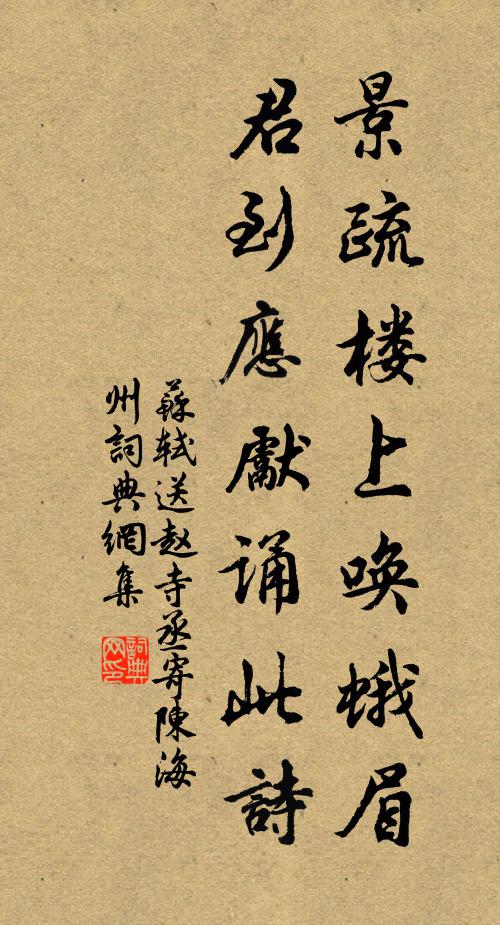 景疏楼上唤蛾眉
君到應獻诵此詩
蘇轼送赵寺丞寄陳海
州詞典網集
詞典
网印